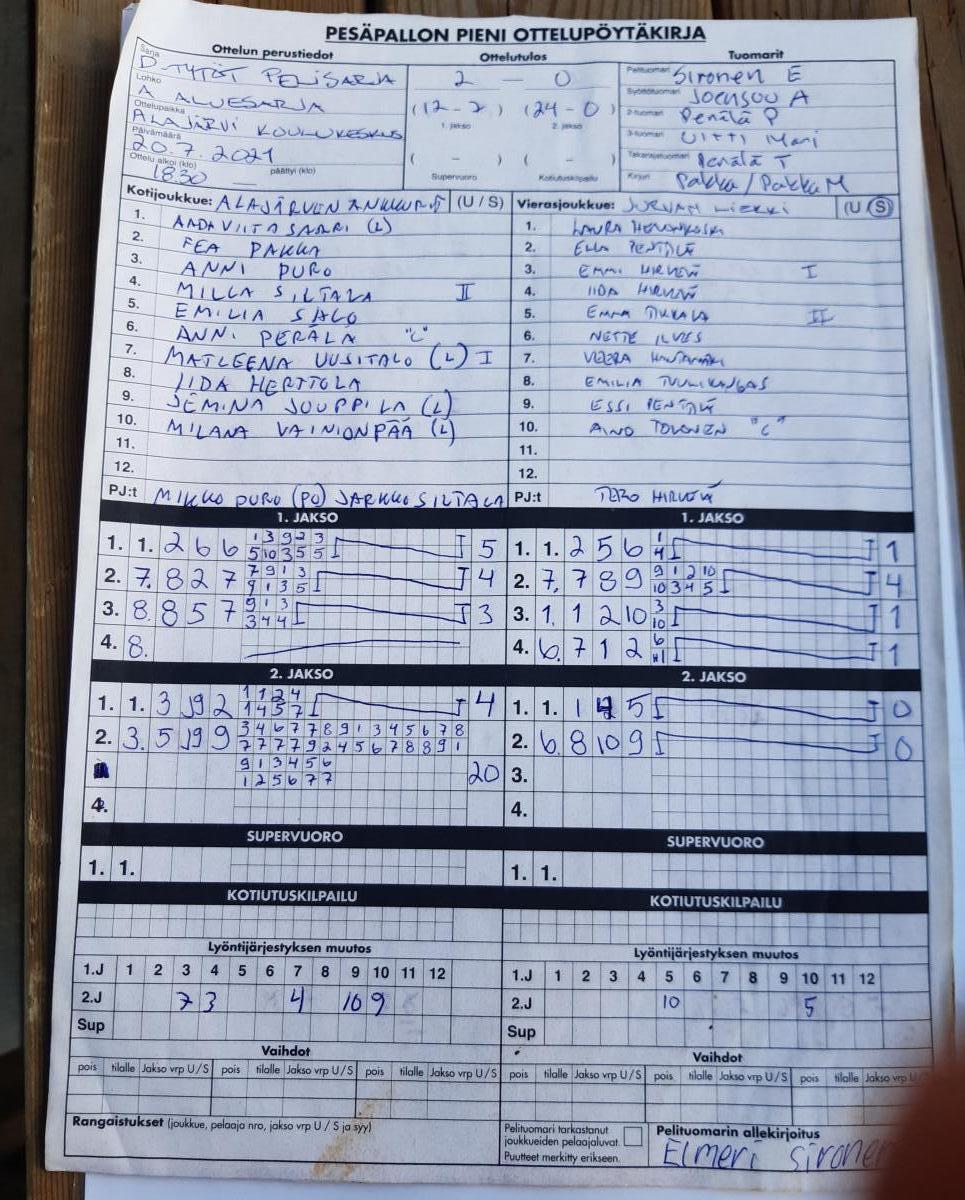 PESÄPALLON PIENI OTTELUPÖYTÄKIRJA
Ottelun perustiedot
Ottelutulos
Tuomarit
Sarja
D-TYTÖT PELISARJA
Lohko
A ALUESARJA
Ottelupaikka
ALAJÄRVI KOULUKESKUS
Päivämäärä
20.7.2021
Ottelu alkoi (klo) 1830 päättyi (klo)
2 – 0
(12-7) (24-0)
1. jakso 2. jakso
( - ) ( - )
Supervuoro Kotiutuskilpailu
Pelituomari Sironen E
Syöttötuomari Joensuu A
2-tuomari Perälä P
3-tuomari Uitti Mari
Takarajatuomari Perälä T
Kirjuri Pakka/Pakka M
Kotijoukkue: ALAJÄRVEN ANKKURIT (U / S)
1. AADA VIITASAARI (L)
2. FEA PAKKA
3. ANNI PURO
4. MILLA SILTALA II
5. EMILIA SALO
6. ANNI PERÄLÄ "C"
7. MATLEENA UUSITALO (L) I
8. IIDA HERTTOLA
9. JEMINA JOUPPILA (L)
10. MILANA VAINIONPÄÄ (L)
11.
12.
PJ:t MIKKO PURO (PO) JARKKO SILTALA
Vierasjoukkue: JURVAN LIEKKI (U / S)
1. LAURA
2. ELLA PENTTILÄ
3. EMMI HIRVELÄ I
4. IIDA HIRVELÄ
5. EMMA TIKKALA II
6. NETTE ILVES
7. VEERA
8. EMILIA TUULIKANGAS
9. ESSI PENTTILÄ
10. AINO TOLONEN "C"
11.
12.
PJ:t TERO HIRVELÄ
1. JAKSO
1. 1. 2 6 6 1 3 9 2 3 5
5 10 3 5 5
2. 7. 8 2 7 7 9 1 3 4
9 1 3 5
3. 8. 8 5 7 9 1 3 3
3 4 4
4. 8.
1. JAKSO
1. 1. 2 5 6 1 1
4
2. 7. 7 8 9 9 1 2 10 4
10 3 4 5
3. 1. 1 2 10 3 1
10
4. 6. 7 1 2 6 1
2. JAKSO
1. 1. 3 9 2 1 1 2 4 4
1 4 5 7
2. 3. 5 9 9 3 4 6 7 7 8 9 1 3 4 5 6 7 8
7 7 7 7 9 2 4 5 6 7 8 8 9 1
9 1 3 4 5 6 20
1 2 5 6 7 7
4.
2. JAKSO
1. 1. 1 4 5 0
2. 6. 8 10 9 0
3.
4.
SUPERVUORO
1. 1.
SUPERVUORO
1. 1.
KOTIUTUSKILPAILU
KOTIUTUSKILPAILU
Lyöntijärjestyksen muutos
1.J 1 2 3 4 5 6 7 8 9 10 11 12
2.J 7 3 4 10 9
Sup
Lyöntijärjestyksen muutos
1.J 1 2 3 4 5 6 7 8 9 10 11 12
2.J 10 5
Sup
Vaihdot
pois tilalle Jakso vrp U / S pois tilalle Jakso vrp U / S pois tilalle Jakso vrp U / S
Vaihdot
pois tilalle Jakso vrp U / S pois tilalle Jakso vrp U / S pois tilalle Jakso vrp U / S
Rangaistukset (joukkue, pelaaja nro, jakso vrp U / S ja syy)
Pelituomari tarkastanut
joukkueiden pelaajaluvat.
Puutteet merkitty erikseen.
Pelituomarin allekirjoitus
Elmeri Sironen